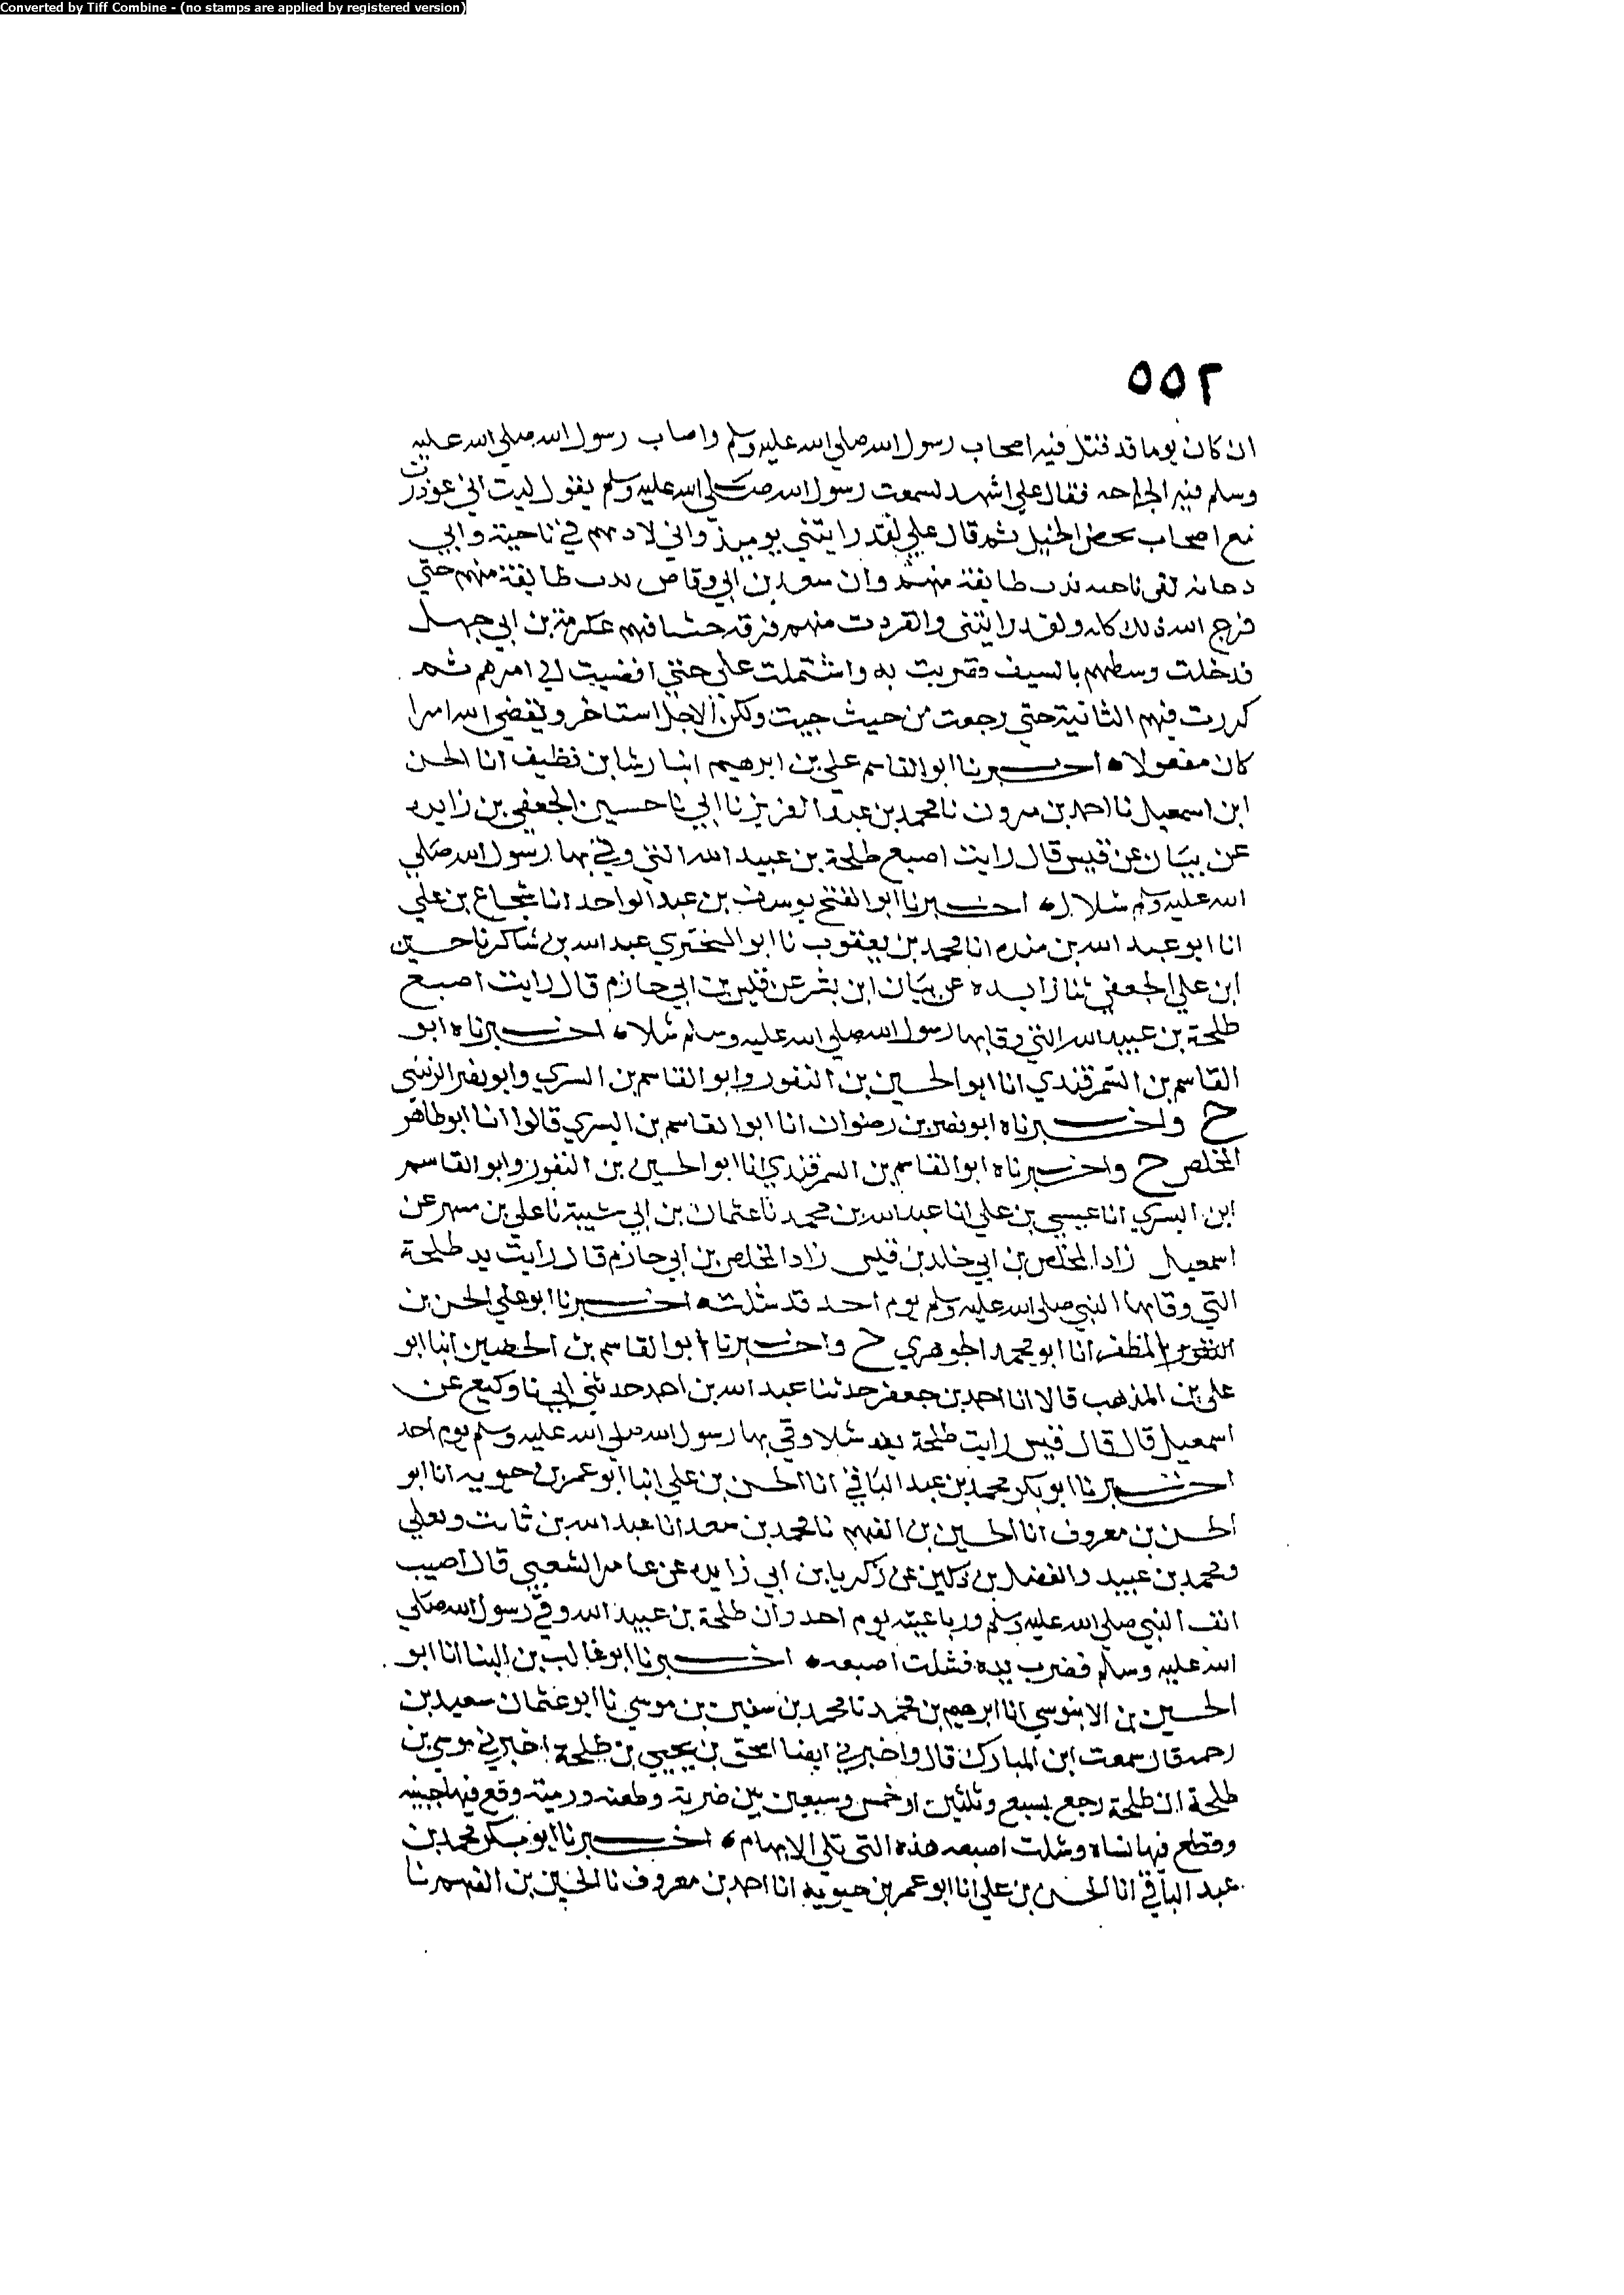 Converted by Tiff Combine - (no stamps are applied by registered version)
٥٥٢
ان كان يوما قد قتل فيه اصحاب رسول الله صلى الله عليه وسلم واصاب رسول الله صلى الله عليه
وسلم فيه الجراحه فقال علي اشهد لسمعت رسول الله صلى الله عليه وسلم يقول ليت اني غودرت
مع اصحاب نحض الجبل ثم قال علي لقد رايتني يوميذ واني لادبهم في ناحية وابي
دجانه لفي ناحيه يذب طايفة منهم وان سعد بن ابي وقاص يذب طايفة منهم حتى
فرج الله ذلك كله ولقد رايتني وانفردت منهم فرقه خشنا فيهم عكرمة بن ابي جهل
فدخلت وسطهم بالسيف فضربت به واشتملت علي حتى افضيت الى اخرهم ثم
كررت فيهم الثانية حتى رجعت من حيث جيت ولكن الاجل استاخر ويقضي الله امرا
كان مفعولا اخبرنا ابو القاسم علي بن ابرهيم انبا رشا بن نظيف انا الحسن
ابن اسمعيل نا احمد بن مروان نا محمد بن عبد العزيز نا ابي نا حسين الجعفي بن زايده
عن بيان عن قيس قال رايت اصبع طلحة بن عبيد الله التي وقي بها رسول الله صلى
الله عليه وسلم شلا اخبرنا ابو الفتح يوسف بن عبد الواحد انا شجاع بن علي
انا ابو عبد الله بن منده انا محمد بن يعقوب نا ابو البختري عبد الله بن شاكر نا حسين
ابن علي الجعفي ثنا زايده عن بيان ابن بشر عن قيس بن ابي حازم قال رايت اصبع
طلحة بن عبيد الله التي وقا بها رسول الله صلى الله عليه وسلم شلا اخبرناه ابو
القاسم بن السمرقندي انا ابو الحسين بن النقور وابو القاسم بن السري وابو نصر الزينبي
ح واخبرناه ابو نصر بن رضوان انا ابو القاسم بن البسري قالوا انا ابو طاهر
المخلص ح واخبرناه ابو القاسم بن السمرقندي انا ابو الحسين بن النقور وابو القاسم
ابن البسري انا عيسى بن علي انا عبد الله بن محمد نا عثمان بن ابي شيبة نا علي بن مسهر عن
اسمعيل زاد المخلص بن ابي خالد بن قيس زاد المخلص بن ابي حازم قال رايت يد طلحة
التي وقا بها النبي صلى الله عليه وسلم يوم احد قد شلت اخبرنا ابو علي الحسن بن
المظفر انا ابو محمد الجوهري ح واخبرنا ابو القاسم بن الحصين انبا ابو
علي بن المذهب قالا انا احمد بن جعفر حدثنا عبد الله بن احمد حدثني ابي نا وكيع عن
اسمعيل قال قال قيس رايت طلحة يده شلا وقي بها رسول الله صلى الله عليه وسلم يوم احد
اخبرنا ابو بكر محمد بن عبد الباقي انا الحسن بن علي انبا ابو عمر بن حيويه انا ابو
الحسن بن معروف انا الحسين بن الفهم نا محمد بن سعد انا عبد الله بن ثابت ويعلي
ومحمد بن عبيد والفضل بن دكين عن زكريا بن ابي زايده عن عامر الشعبي قال اصيب
انف النبي صلى الله عليه وسلم ورباعيته يوم احد وان طلحة بن عبيد الله وقي رسول الله صلى
الله عليه وسلم فضرب يده فشلت اصبعه اخبرنا ابو غالب بن البنا انا ابو
الحسين بن الابنوسي انا ابرهيم بن محمد نا محمد بن سفين بن موسي نا ابو عثمان سعيد بن
رحمه قال سمعت ابن المبارك قال واخبرني ايضا اسحق بن يحيي بن طلحة اخبرني موسي بن
طلحة ان طلحة رجع بسبع وثلثين او خمس وسبعين بين ضربة وطعنه ورمية وقع فيها جبينه
وقطع فيها نساه وشلت اصبعه هذه التي تلي الابهام اخبرنا ابو بكر محمد بن
عبد الباقي انا الحسن بن علي انا ابو عمر بن حيويه انا احمد بن معروف نا الحسين بن الفهم نا